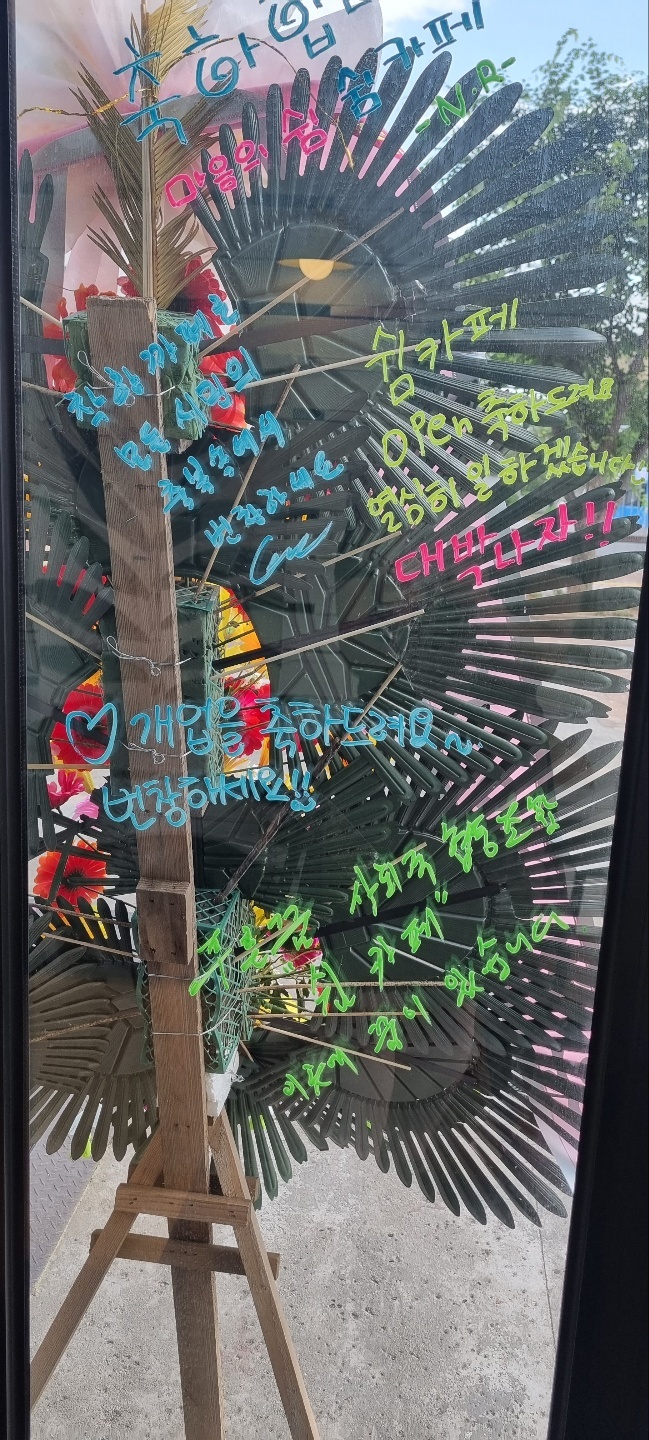 축하합
마음의 쉼 쉼카페
-N.R-
착한 카페는
모든 시민의
축복속에서
번창하세요
쉼카페
Open 축하드려요
열심히 일하겠습니다~
대박나자!!
♡ 개업을 축하드려요~
번창하세요!!
사회적 협동조합
"쉼 카페"
이곳에 쉼이 있습니다